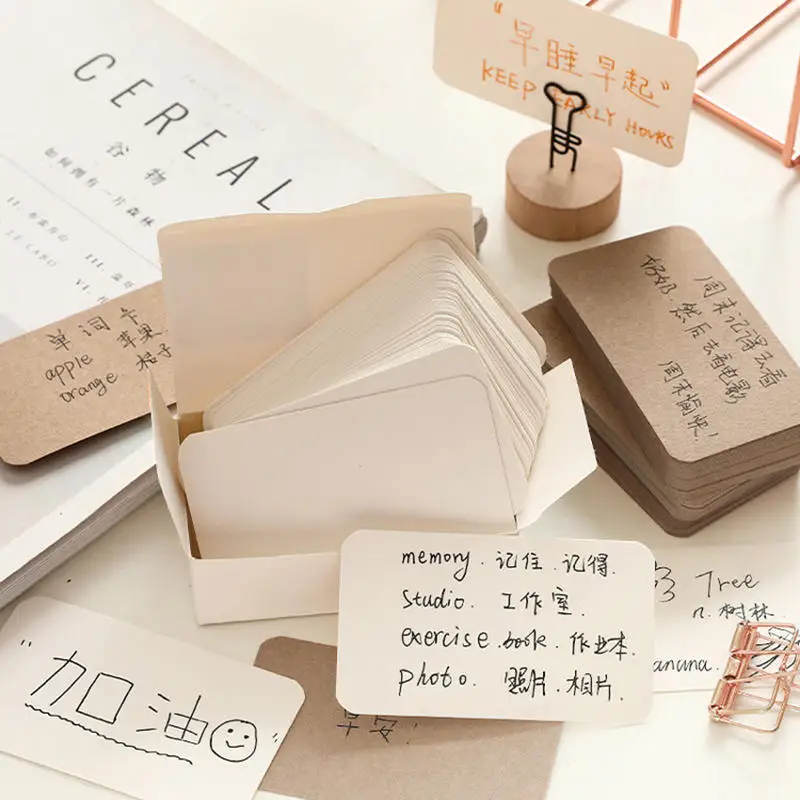 CEREAL
谷物
如何拥有一片森林
"早睡早起"
KEEP EARLY HOURS
单词卡
apple 苹果
orange 桔子
周末记得去看
奶奶.然后去看电影
周末愉快!
memory.记住.记得.
Studio.工作室.
exercise.book.作业本.
photo.照片.相片.
Tree
n.树林
"加油
早安!